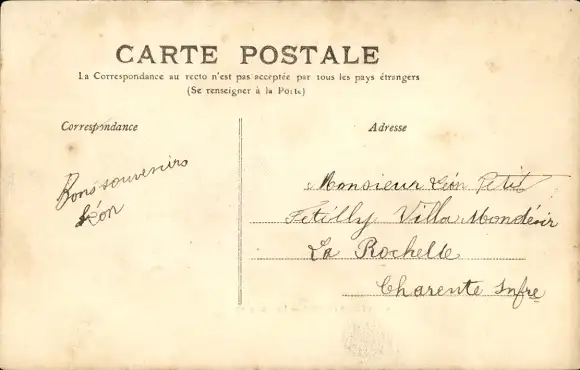 CARTE POSTALE
La Correspondance au recto n'est pas acceptée par tous les pays étrangers
(Se renseigner à la Poste)
Correspondance
Adresse
Bons souvenirs
Léon
Monsieur Léon Petit
Fétilly Villa Mondésir
La Rochelle
Charente Infre